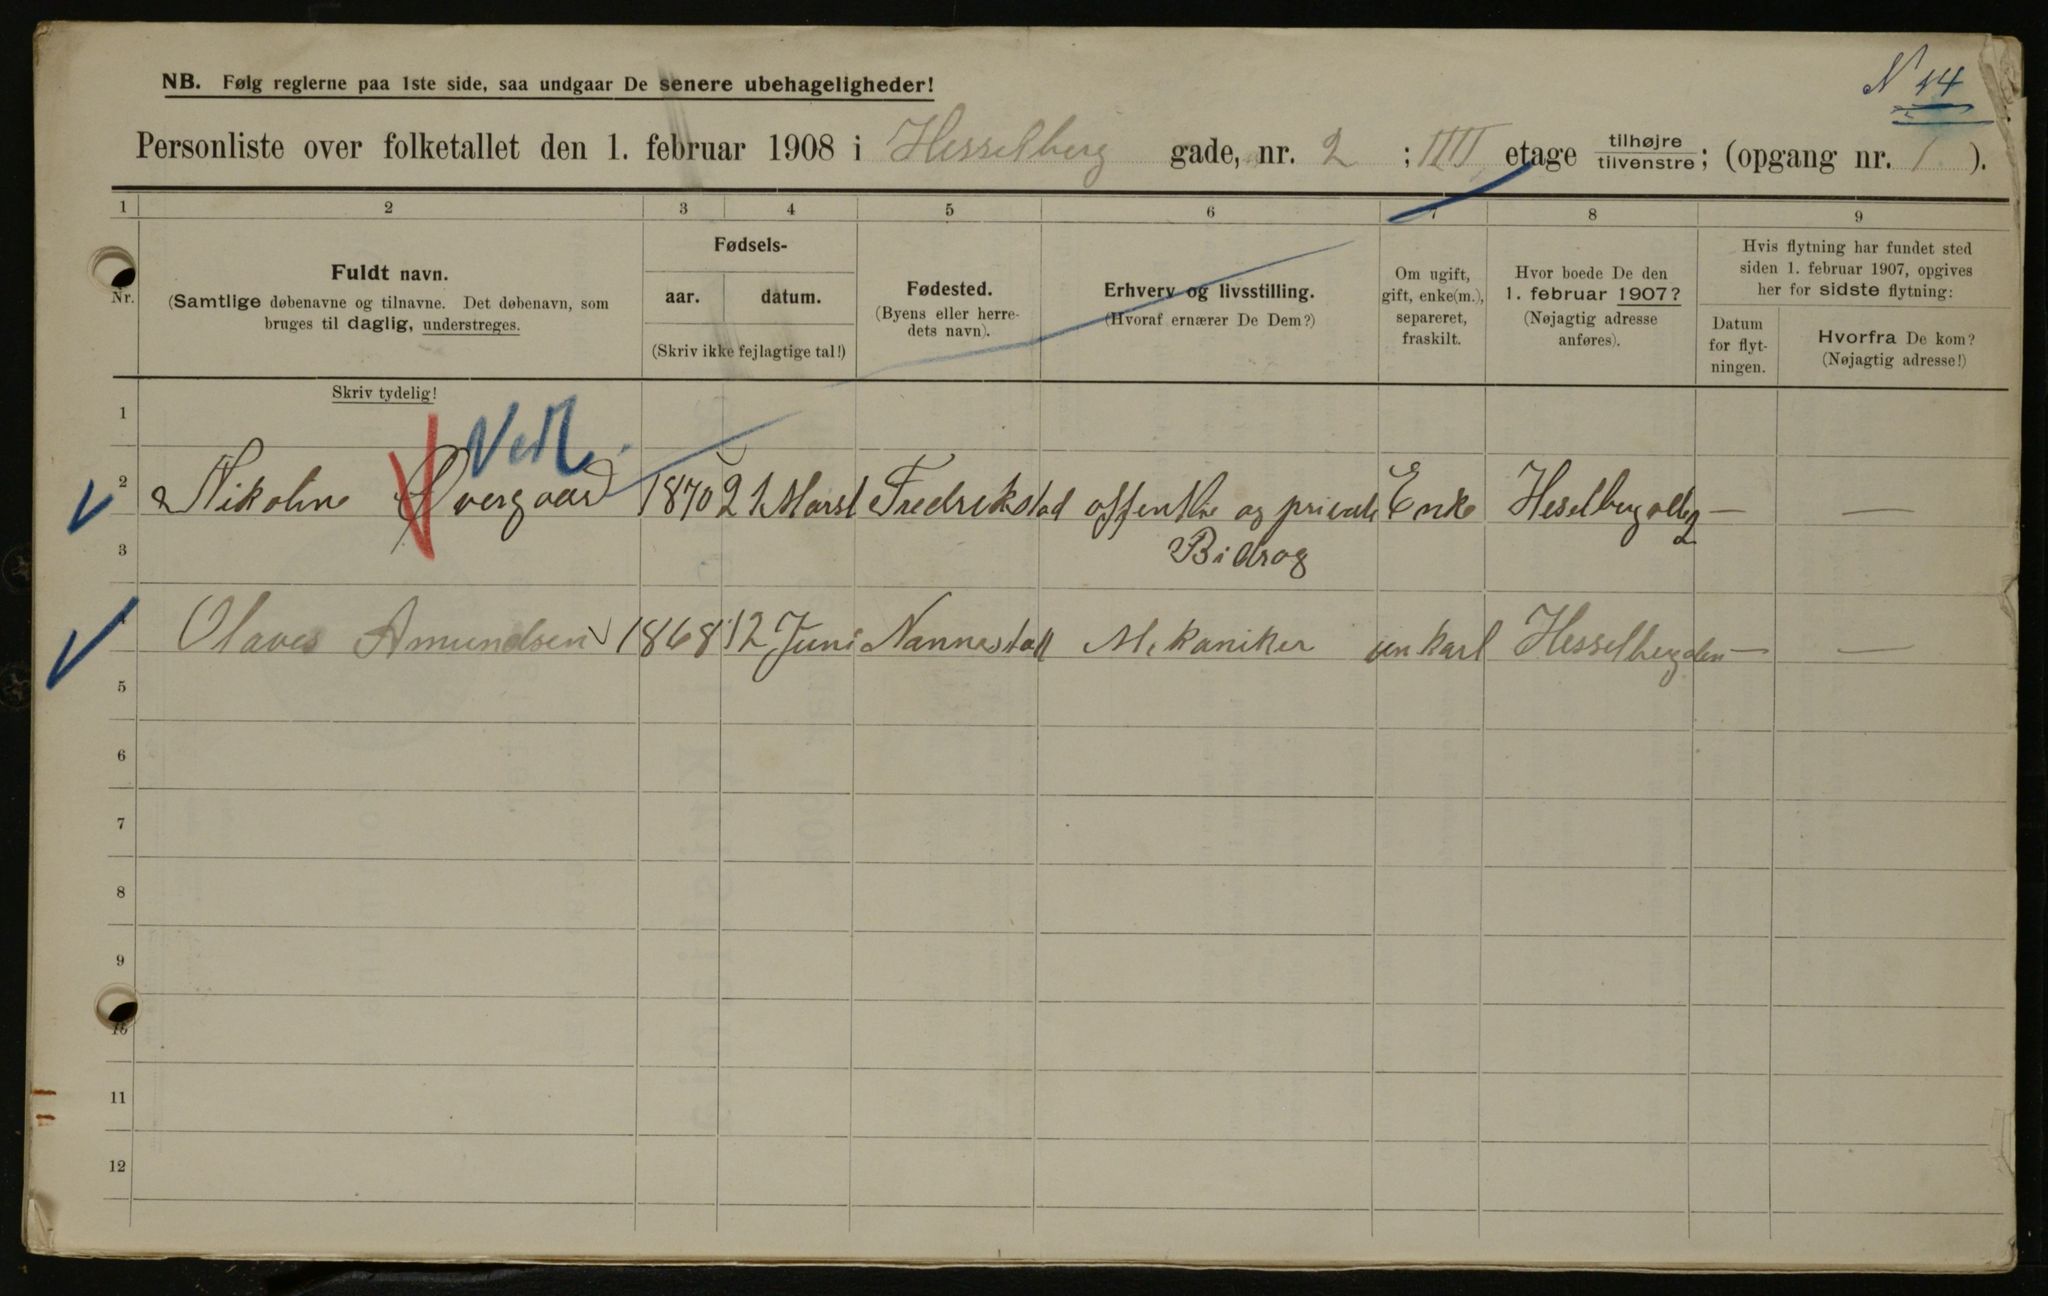 N 44
NB. Følg reglerne paa 1ste side, saa undgaar De senere ubehageligheder!
Personliste over folketallet den 1. februar 1908 i Hesselberg gade, nr. 2 ; IIII etage tilhøjre tilvenstre; (opgang nr. 1 ).
1 2 3 4 5 6 7 8 9
Nr.
Fuldt navn.
(Samtlige døbenavne og tilnavne. Det døbenavn, som
bruges til daglig, understreges.
Fødsels-
aar. datum.
(Skriv ikke fejlagtige tal!)
Fødested.
(Byens eller herre-
dets navn).
Erhverv og livsstilling.
(Hvoraf ernærer De Dem?)
Om ugift,
gift, enke(m.),
separeret,
fraskilt.
Hvor boede De den
1. februar 1907?
(Nøjagtig adresse
anføres).
Hvis flytning har fundet sted
siden 1. februar 1907, opgives
her for sidste flytning:
Datum
for flyt-
ningen.
Hvorfra De kom?
(Nøjagtig adresse!)
Skriv tydelig!
1
2 Nikoline Øvergaard 1870 21 Marst Fredrikstad offentlie og private Enke 2 — —
3 Bidrag
Olaves Amundsen 1868 12 Juni Nannestad Mekaniker unkarl — —
5
6
7
8
9
10
11
12